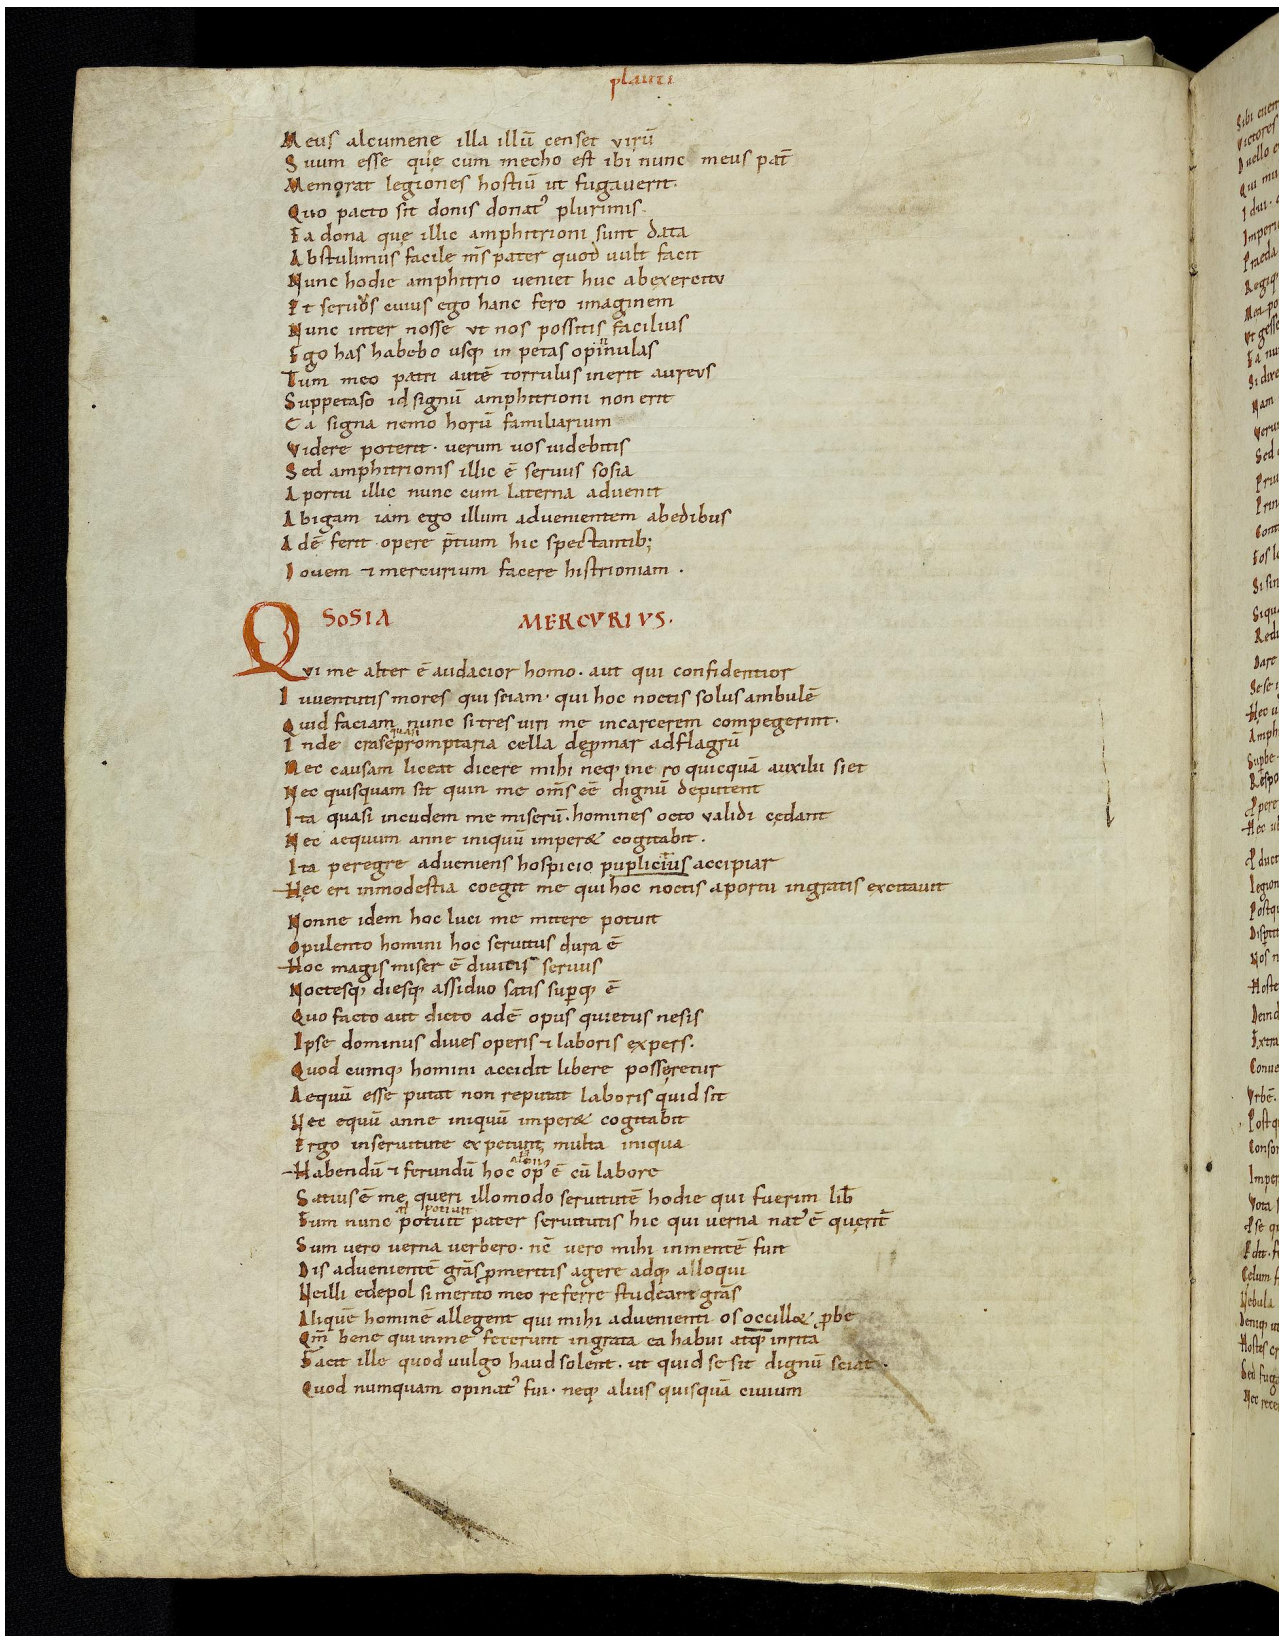 plauti
Meus alcumene illa illū censet virū
Suum esse quę cum mecho est ibi nunc meus pat̄
Memorat legiones hostiū ut fugauerit.
Quo pacto sit donis donatꝰ plurimis.
Ea dona quę illic amphitrioni sunt data
Abstulimus facile m̄s pater quod uult facit
Nunc hodie amphitrio ueniet huc abexercitu
Et seruos cuius ego hanc fero imaginem
Nunc inter nosse ut nos possitis facilius
Ego has habebo usq; in petas opinnulas
Tum meo patri autē torrulus inerit aureus
Suppetaso id signū amphitrioni non erit
Ea signa nemo horū familiarium
Videre poterit. uerum uos uidebitis
Sed amphitrionis illic ē seruus sosia
A portu illic nunc cum laterna aduenit
Abigam iam ego illum aduenientem abedibus
Adē ferit opere p̄tium hic spectantib;
Iouem ⁊ mercurium facere histrioniam.
SOSIA MERCVRIVS.
Qvi me alter ē audacior homo. aut qui confidentior
Iuuentutis mores qui sciam. qui hoc noctis solus ambulē
Quid faciam nunc si tres uiri me incarcerem compegerint.
quasi
Inde crasepromptaria cella deꝓmar adflagrū
Nec causam liceat dicere mihi neq; me ro quicquā auxilii siet
Nec quisquam sit quin me om̄s eē dignū deputent
Ita quasi incudem me miserū. homines octo validi cędant
Nec aequum anne iniquū imper& cogitabit.
Ita peregre adueniens hospicio puplicius accipiar
Hęc eri inmodestia coegit me qui hoc noctis aportu ingratis excitauit
Nonne idem hoc luci me mitere potuit
Opulento homini hoc seruitus dura ē
Hoc magis miser ē diuitis seruus
Noctesq; diesq; assiduo satis suꝑq; ē
Quo facto aut dicto adē opus quietus nesis
Ipse dominus diues operis ⁊ laboris expers.
Quod cumq; homini accidit libere posseretur
Aequū esse putat non reputat laboris quid sit
Nec equū anne iniquū imper& cogitabit
Ergo inseruitute expetunt multa iniqua
Habendū ⁊ ferundū hoc opꝰ ē cū labore
Satius ē me queri illomodo seruitutē hodie qui fuerim lib̄
potiuit
Eum nunc potuit pater seruitutis hic qui uerna natꝰ ē querit̄
Sum uero uerna uerbero. nē uero mihi inmentē fuit
Dis aduenientē grās ꝓmeritis agere adq; alloqui
Neilli edepol si merito meo referre studeant grās
Aliquē hominē allegent qui mihi aduenienti os occill& ꝓbe
Qm̄ bene qui inme fecerunt ingrata ea habui atq; inrita
Facit ille quod uulgo haud solent. ut quid se sit dignū sciat.
Quod numquam opinatꝰ fui. neq; alius quisquā ciuium